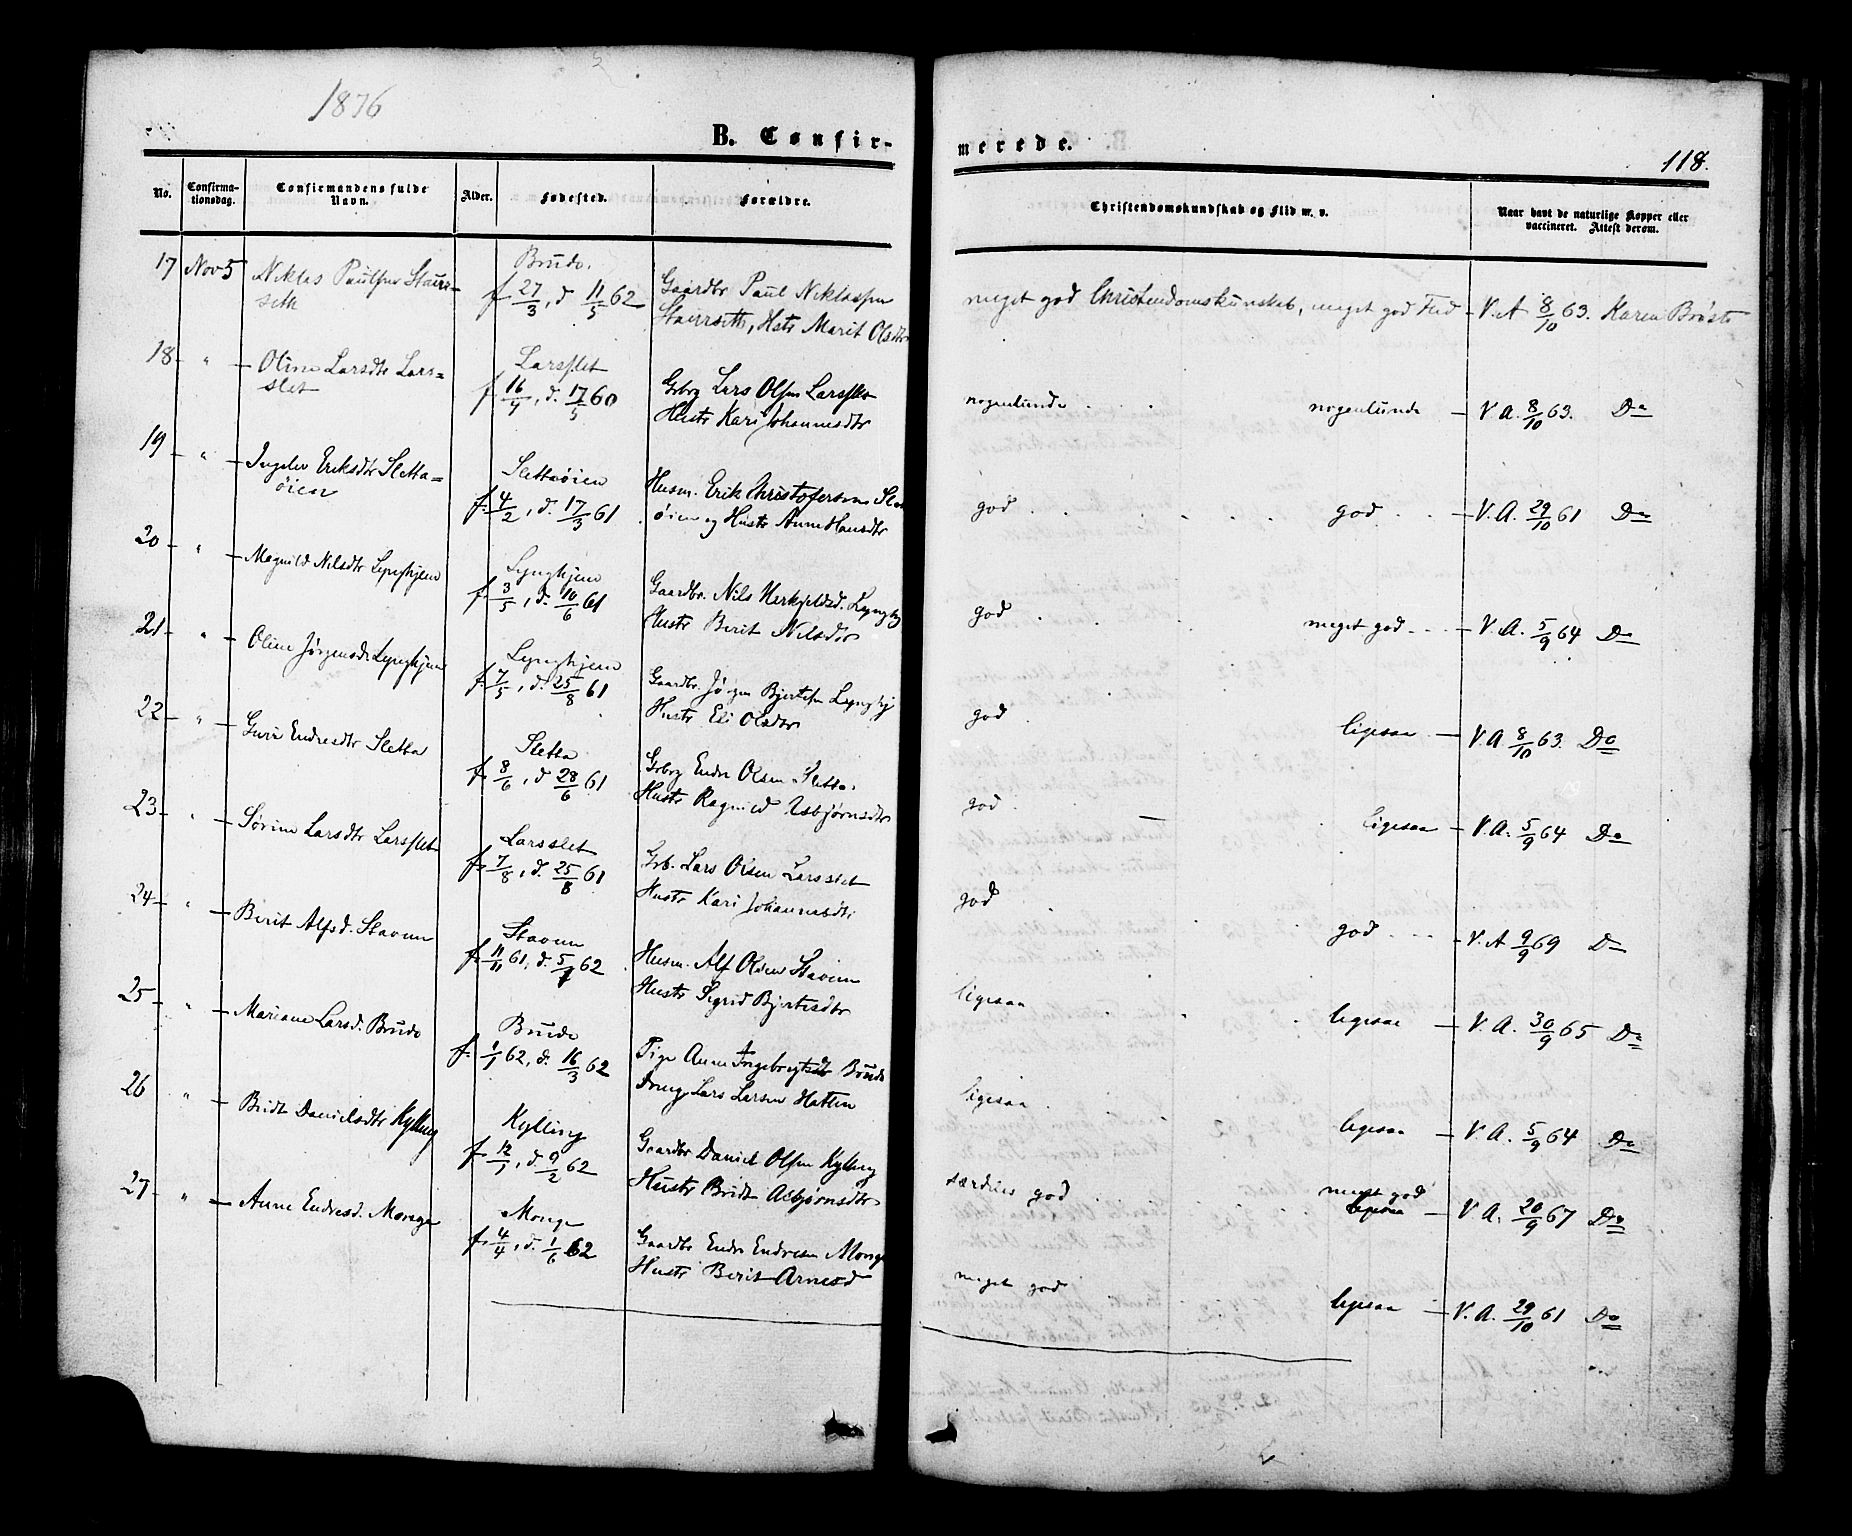 1876
B. Confir-
merede.
118.
No.
Confirma-
tionsdag.
Confirmandens fulde
Navn.
Alder.
Fødested.
Forældre.
Christendomskundskab og Flid m. v.
Naar havt de naturlige Kopper eller
vaccineret. Attest derom.
17 Nov 5 Niklas Paulsen Staurs=
seth
Brude.
f 27/3, d 11/5 62
Gaardbr Paul Niklassen
Hstr Marit Olsdtr
meget god Christendomskunskab, meget god Flid
V.A 8/10 63. Karen Brøste
18 " Oline Larsdtr Lars=
slet
Larsslet
f 16/4, d. 17/5 60
Gbrg Lars Olsen Larsslet
Hustr Kari Johannesdtr
nogenlunde . . nogenlunde
V.A. 8/10 63. Do
19 " Ingelev Eriksdtr Sletta=
øien
Slettaøien
f. 4/2, d. 17/3 61
Husm. Erik Christofersen Slet
øien og Hustr Anne Hansdtr
god . . . god . .
V.A. 29/10 61 Do
20 " Magnild Nilsdtr Lynghjem
Lynghjem
f 3/5, d. 10/6 61
Gaardbr. Nils Herkjeldsd. Lynghj
Hustr Berit Nilsdtr
god . meget god
V.A. 5/9 64 Do
21 " Oline Jørgensdr Lynghjem
Lynghjem
f. 7/5, d. 25/8 61
Gaardbr. Jørgen Bjertsen Lynghj
Hustr Eli Olsdtr
god . ligesaa
V.A 8/10 63. Do
22 " Guri Endresdtr Sletta
Sletta
f. 8/6, d 28/6 61
Gbrg Endre Olsen Sletta.
Hustr Ragnild Asbjørnsdtr
god . ligesaa
V.A. 5/9 64 Do
23 " Sørine Larsdtr Larsslet
Larsslet
f. 7/8, d. 25/8 61
Grb. Lars Olsen Larsslet
Hustr Kari Johannesdtr
god . god
V.A 9/9 69 Do
24 " Berit Alfsd. Stavem
Stavem
f. 11/11 61, d. 5/1 62
Husm. Alf Olsen Stavem
Hustr Sigrid Bjertesdtr
ligesaa . ligesaa
V.A. 30/9 65 Do
25 " Mariane Larsd. Brude
Brude
f. 1/1 62, d. 16/3 62
Pige Anne Ingebregtsdtr Brude
Dreng Lars Larsen Hatten
ligesaa . ligesaa
V.A. 5/9 64 Do
26 " Bridt Danielsdtr Kylling
Kylling
f 12/1, d. 9/2 62
Gaardbr Daniel Olsen Kylling
Hustr Bridt Asbjørnsdtr
særdeles god . meget god
ligesaa
V.A. 20/9 67 Do
27 " Anne Endresd. Monge
Monge
f. 4/4, d. 1/6 62
Gaardbr Endre Endresen Monge
Hustr Berit Arnesd
meget god ligesaa
V.A. 29/10 61 Do